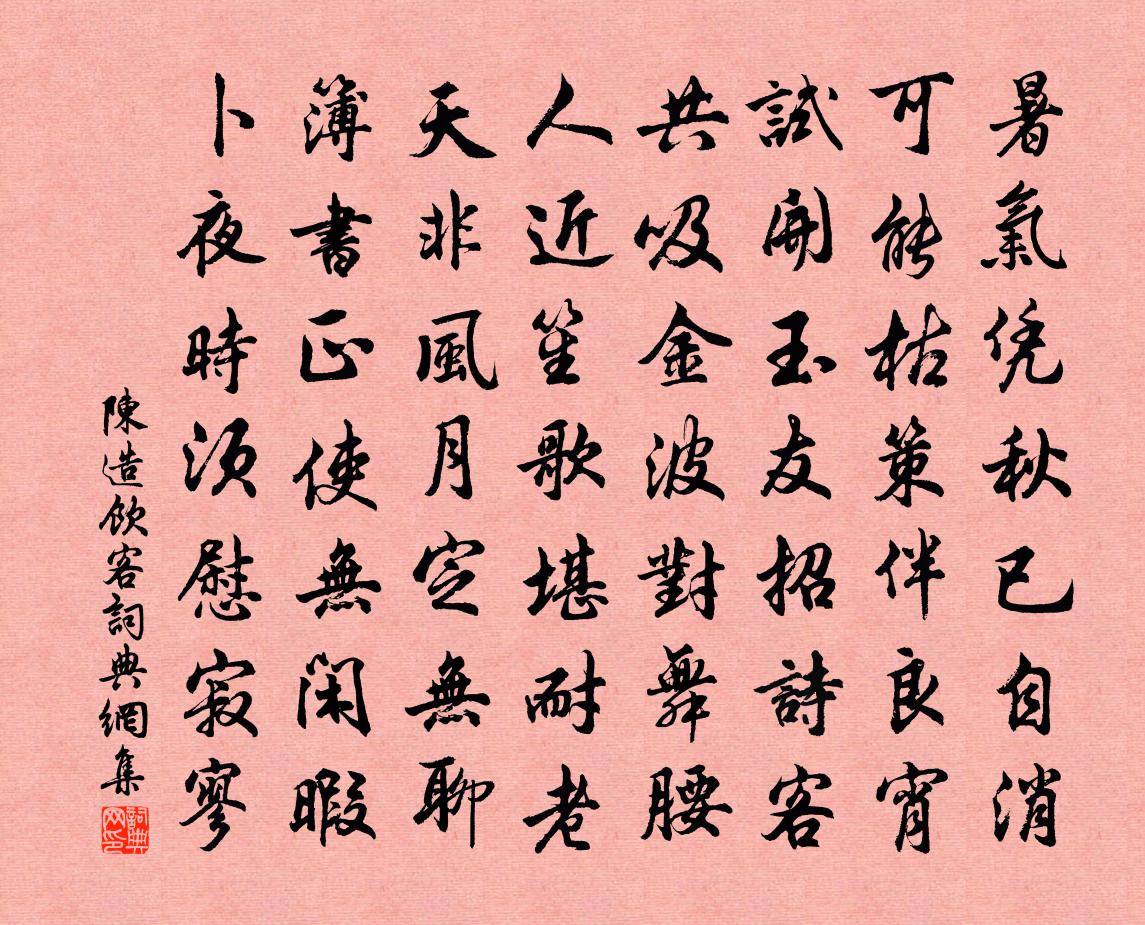 暑氣凭秋已自消
可能枯策伴良宵
試開玉友招詩客
共吸金波對舞腰
人近笙歌堪耐老
天非風月定無聊
簿書正使無閑暇
卜夜時須慰寂寥
陳造飲客詞典網集
詞典网印